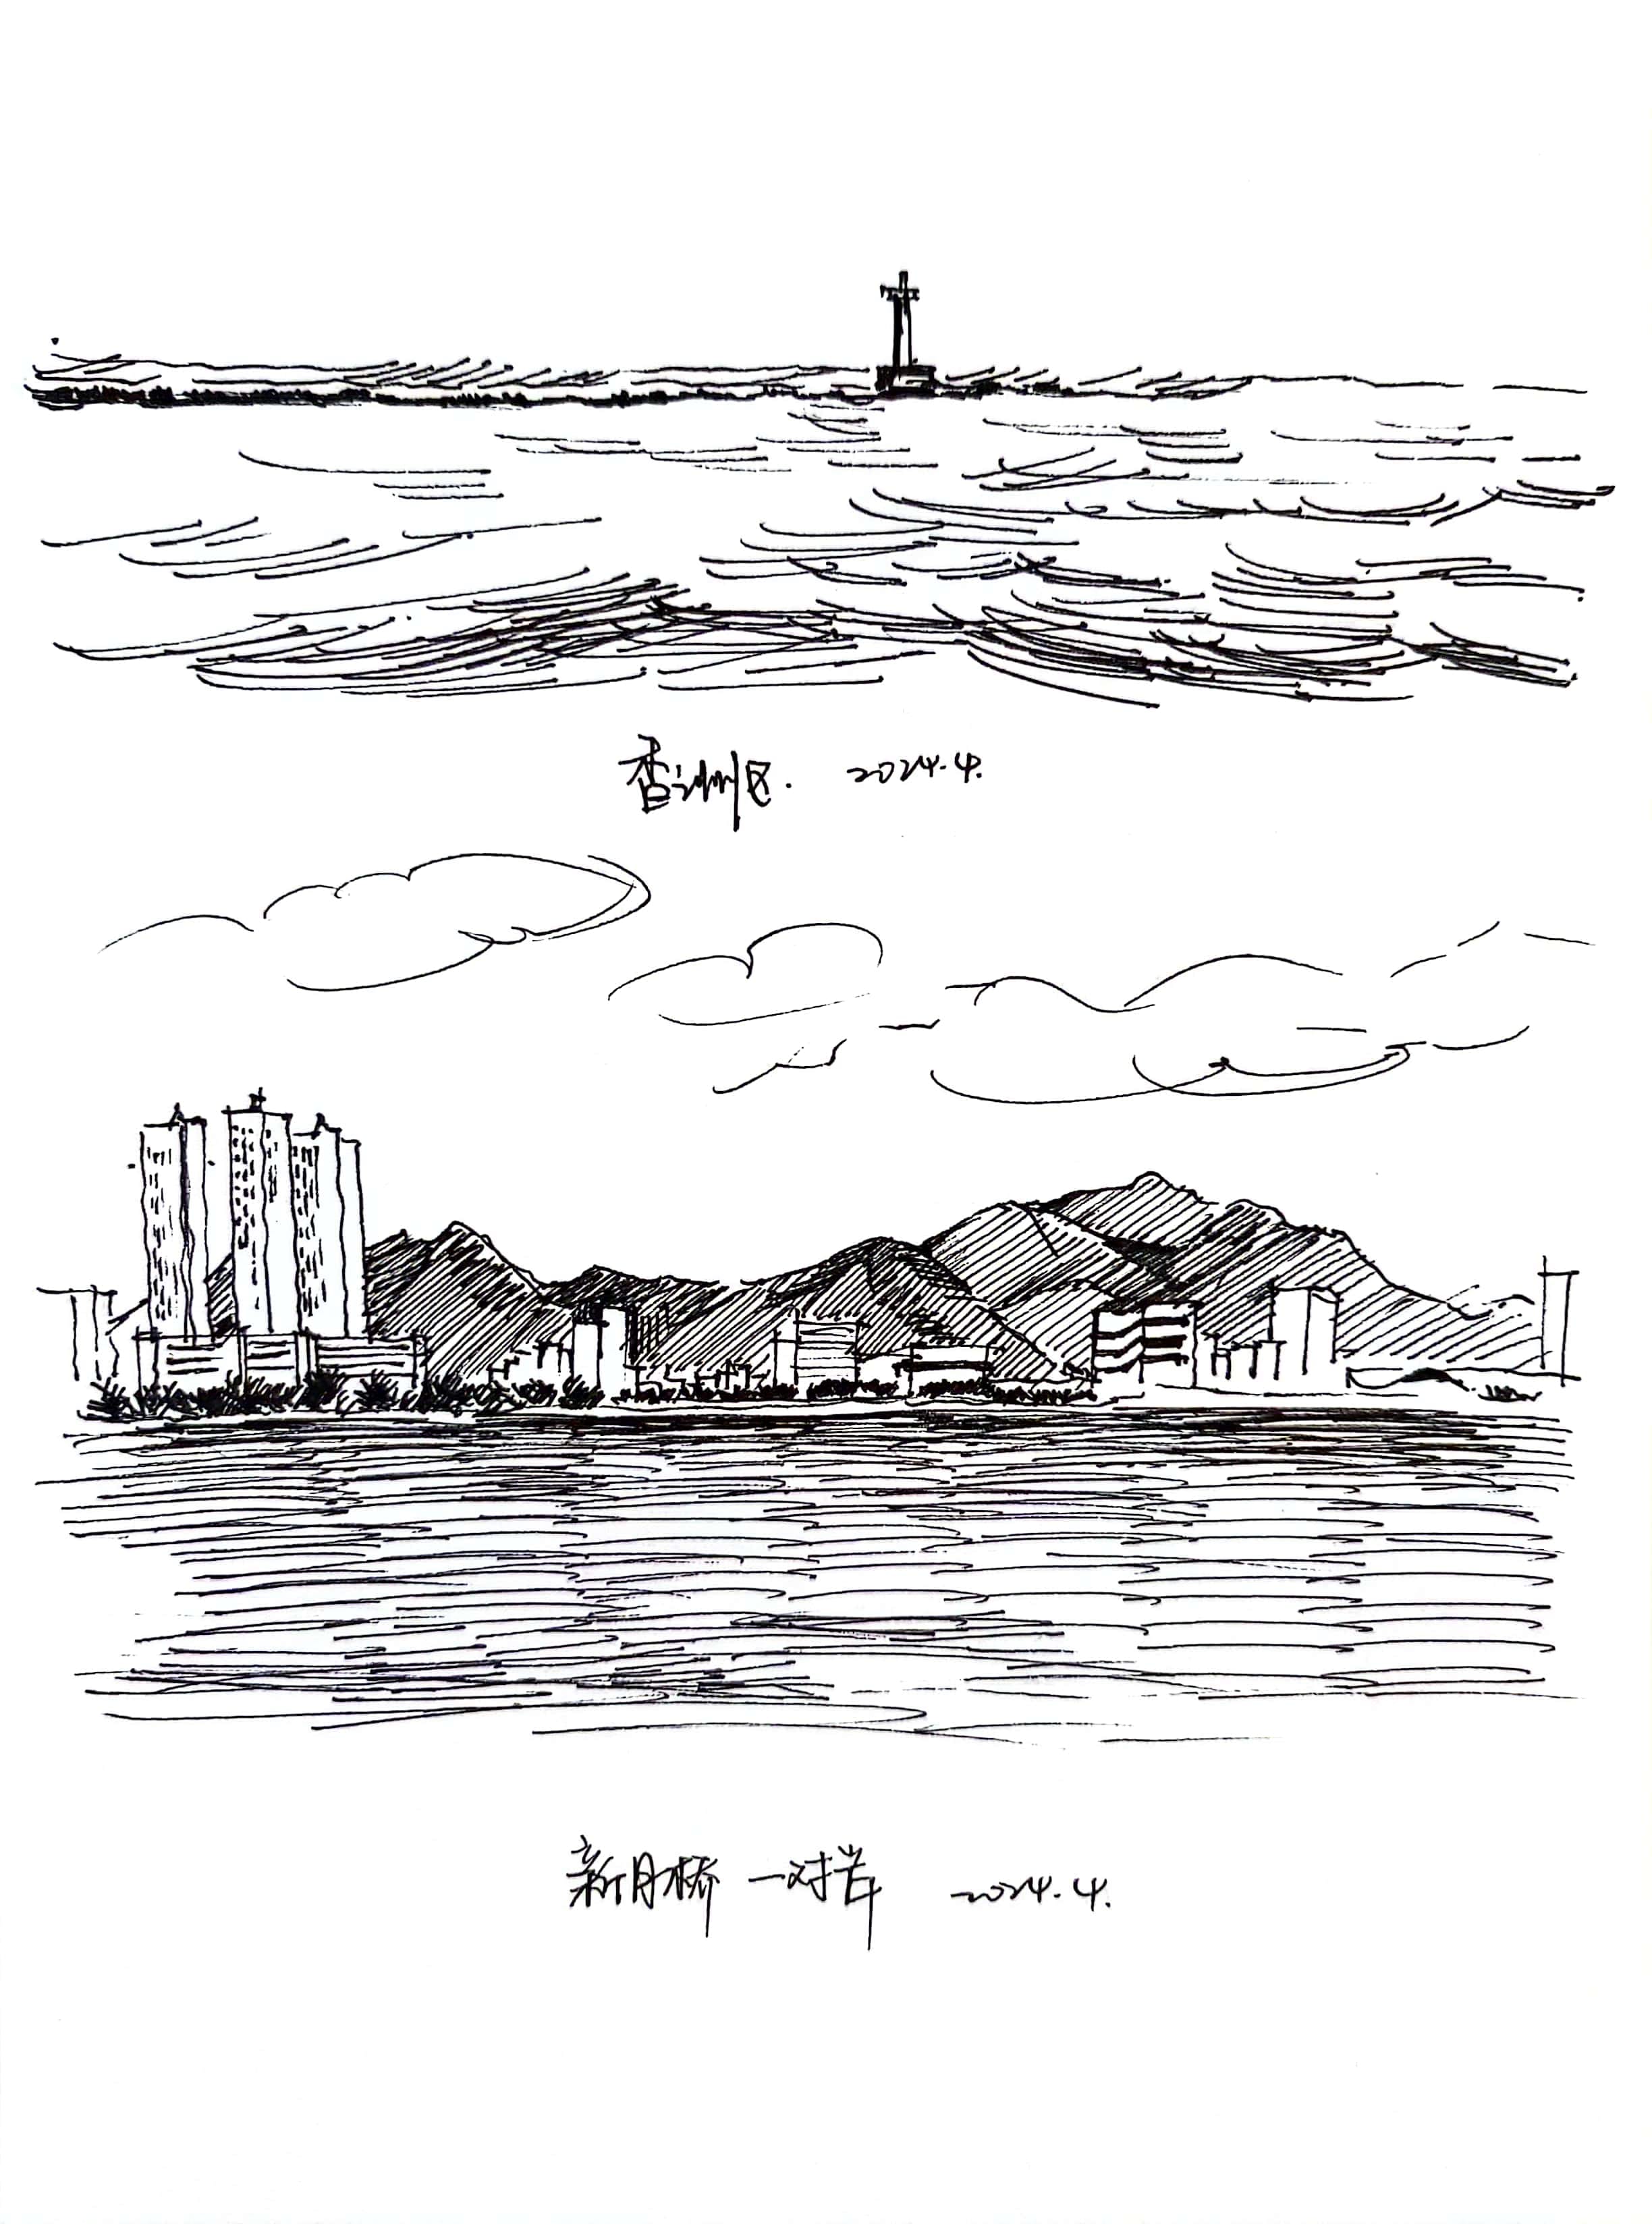 香洲区. 2024.4.
新月桥 一对岸 2024.4.